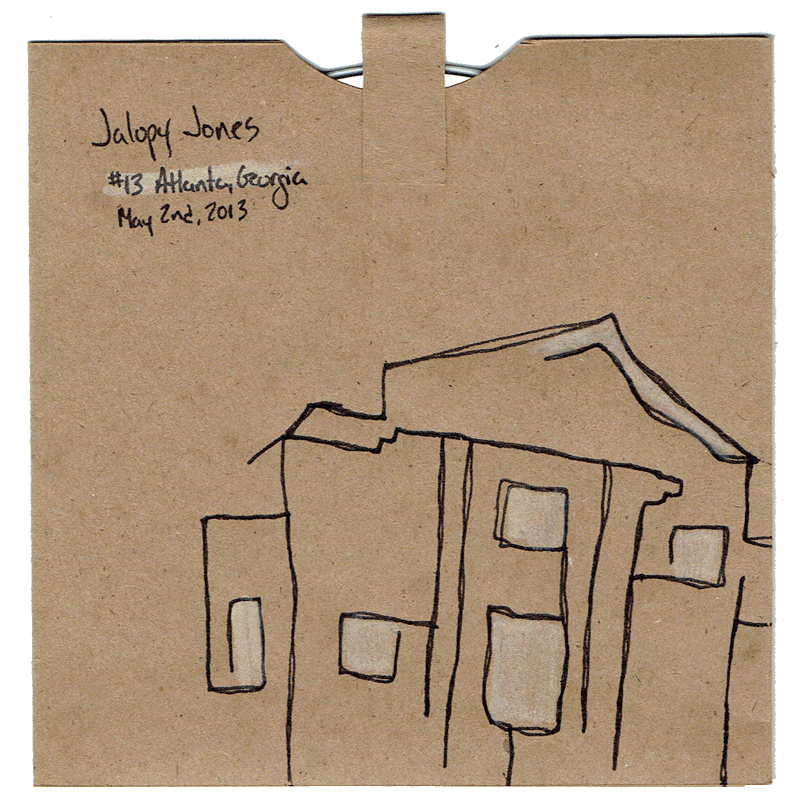 Jalopy Jones
#13 Atlanta, Georgia
May 2nd, 2013